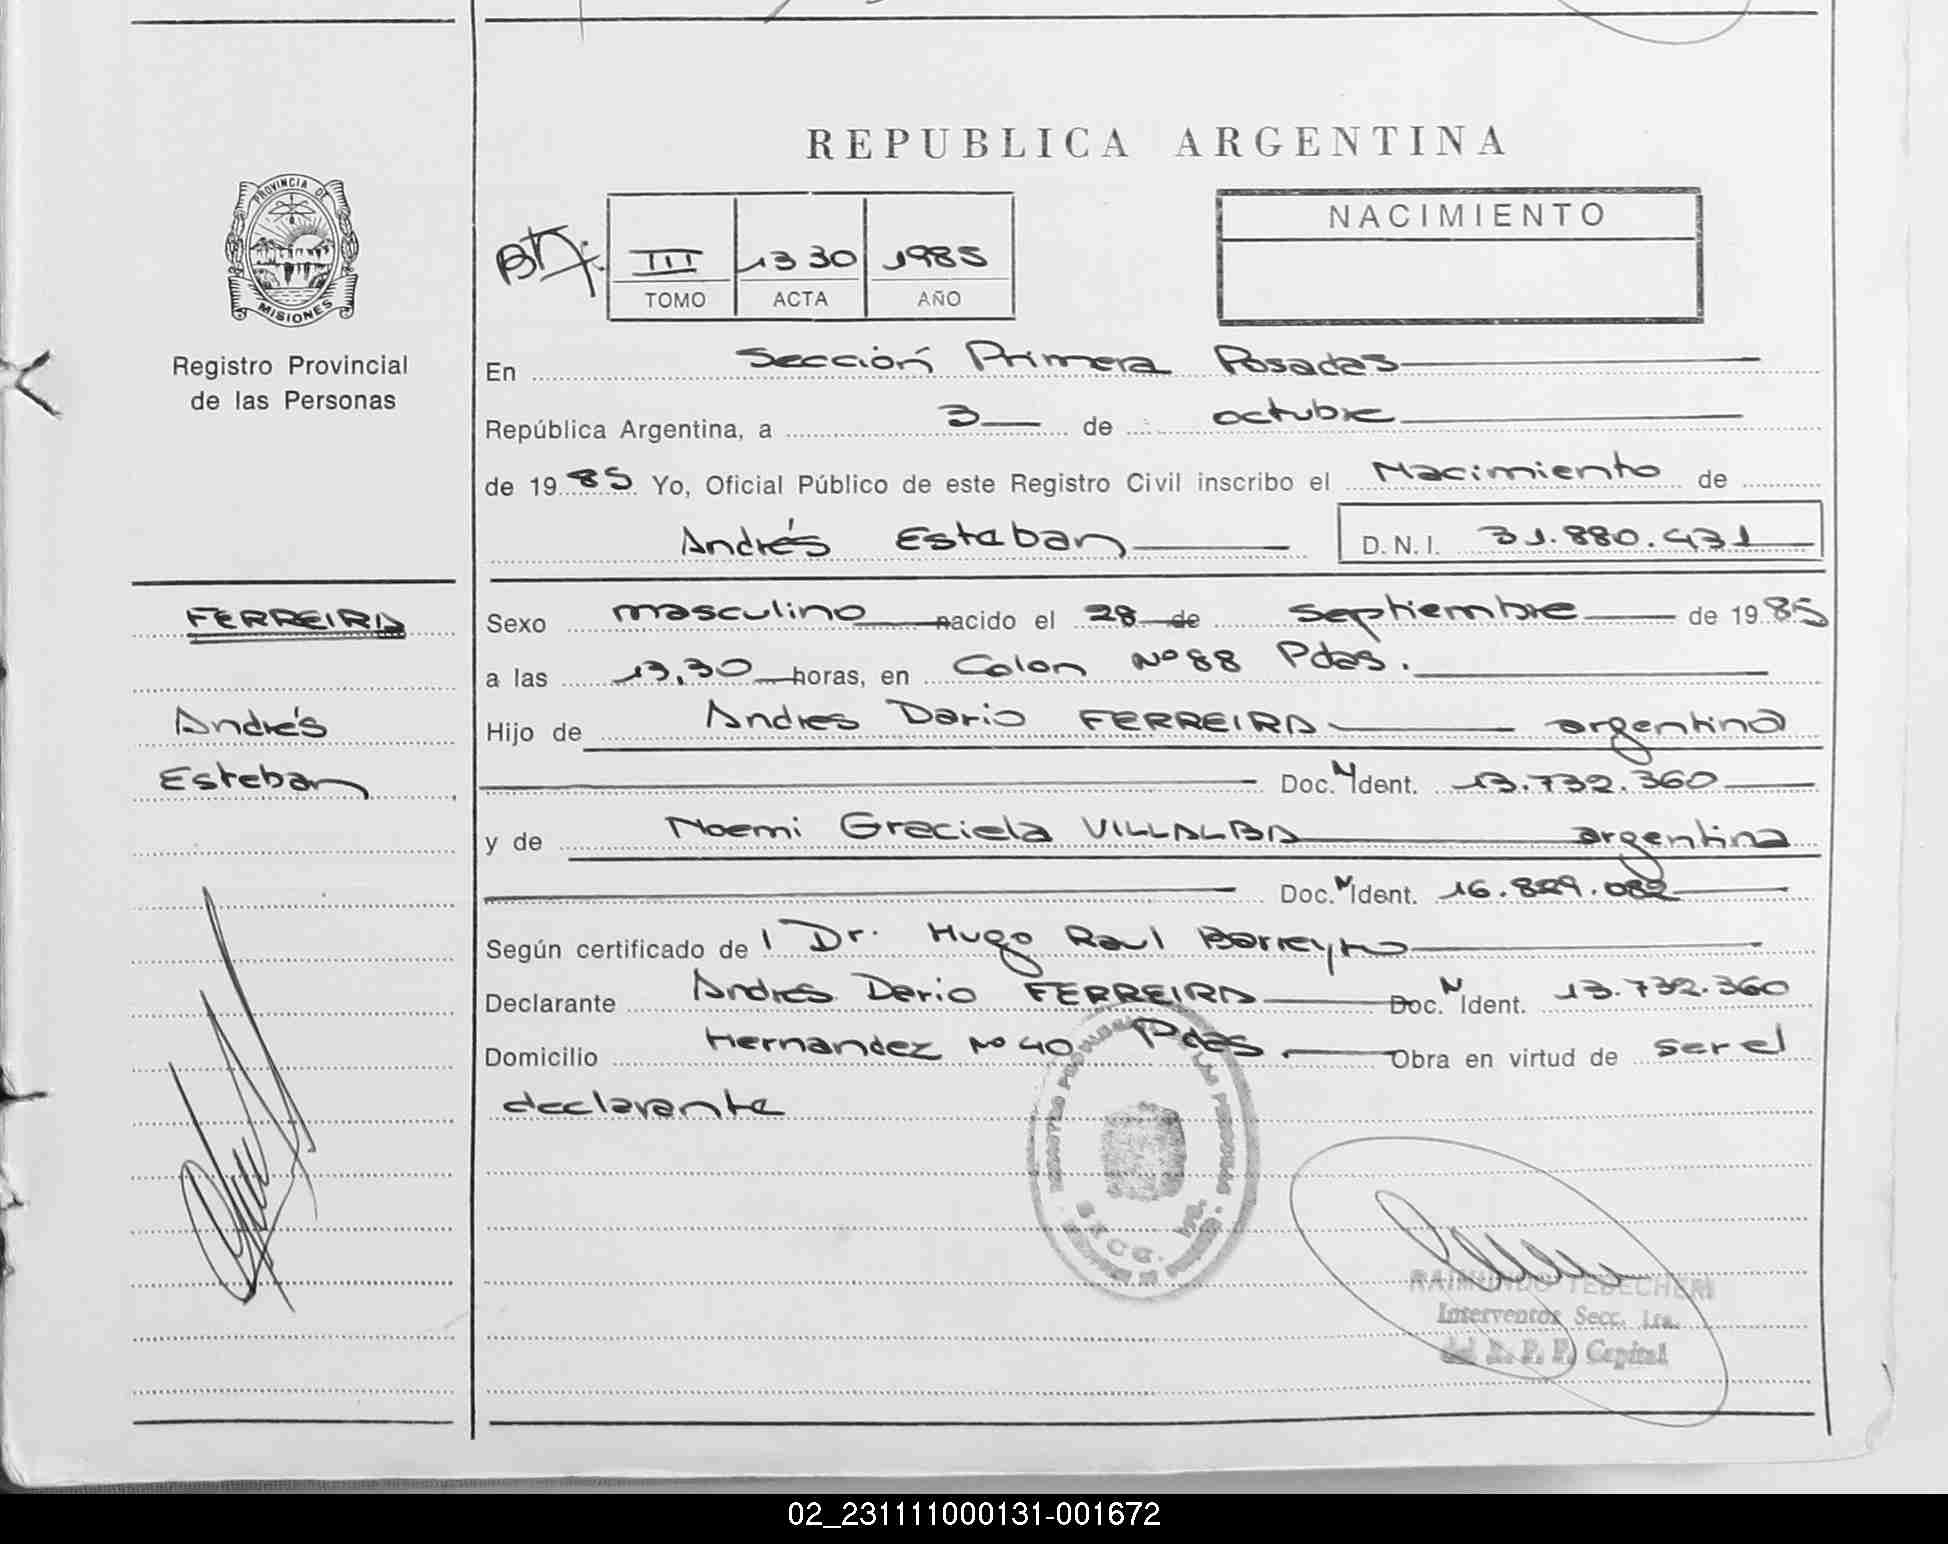 REPUBLICA ARGENTINA
PROVINCIA DE
MISIONES
Registro Provincial
de las Personas
III 1330 1985
TOMO ACTA AÑO
NACIMIENTO
En Sección Primera Posadas
República Argentina, a 3 de octubre
de 1985 Yo, Oficial Público de este Registro Civil inscribo el Nacimiento de
Andrés Esteban D.N.I. 31.880.431
FERREIRA
Andrés
Esteban
Sexo masculino nacido el 28 de septiembre de 1985
a las 13,30 horas, en Colon Nº 88 Pdas.
Hijo de Andres Dario FERREIRA argentino
Doc. N Ident. 13.732.360
y de Noemi Graciela VILLALBA argentina
Doc. N Ident. 16.829.082
Según certificado de l Dr. Hugo Raul Barreyro
Declarante Andres Dario FERREIRA Doc. N Ident. 13.732.360
Domicilio Hernandez Nº 40 Pdas. Obra en virtud de ser el
declarante
RAIMUNDO TEDECHERI
Interventor Secc. 1ra.
del R. P. P. Capital
02_231111000131-001672